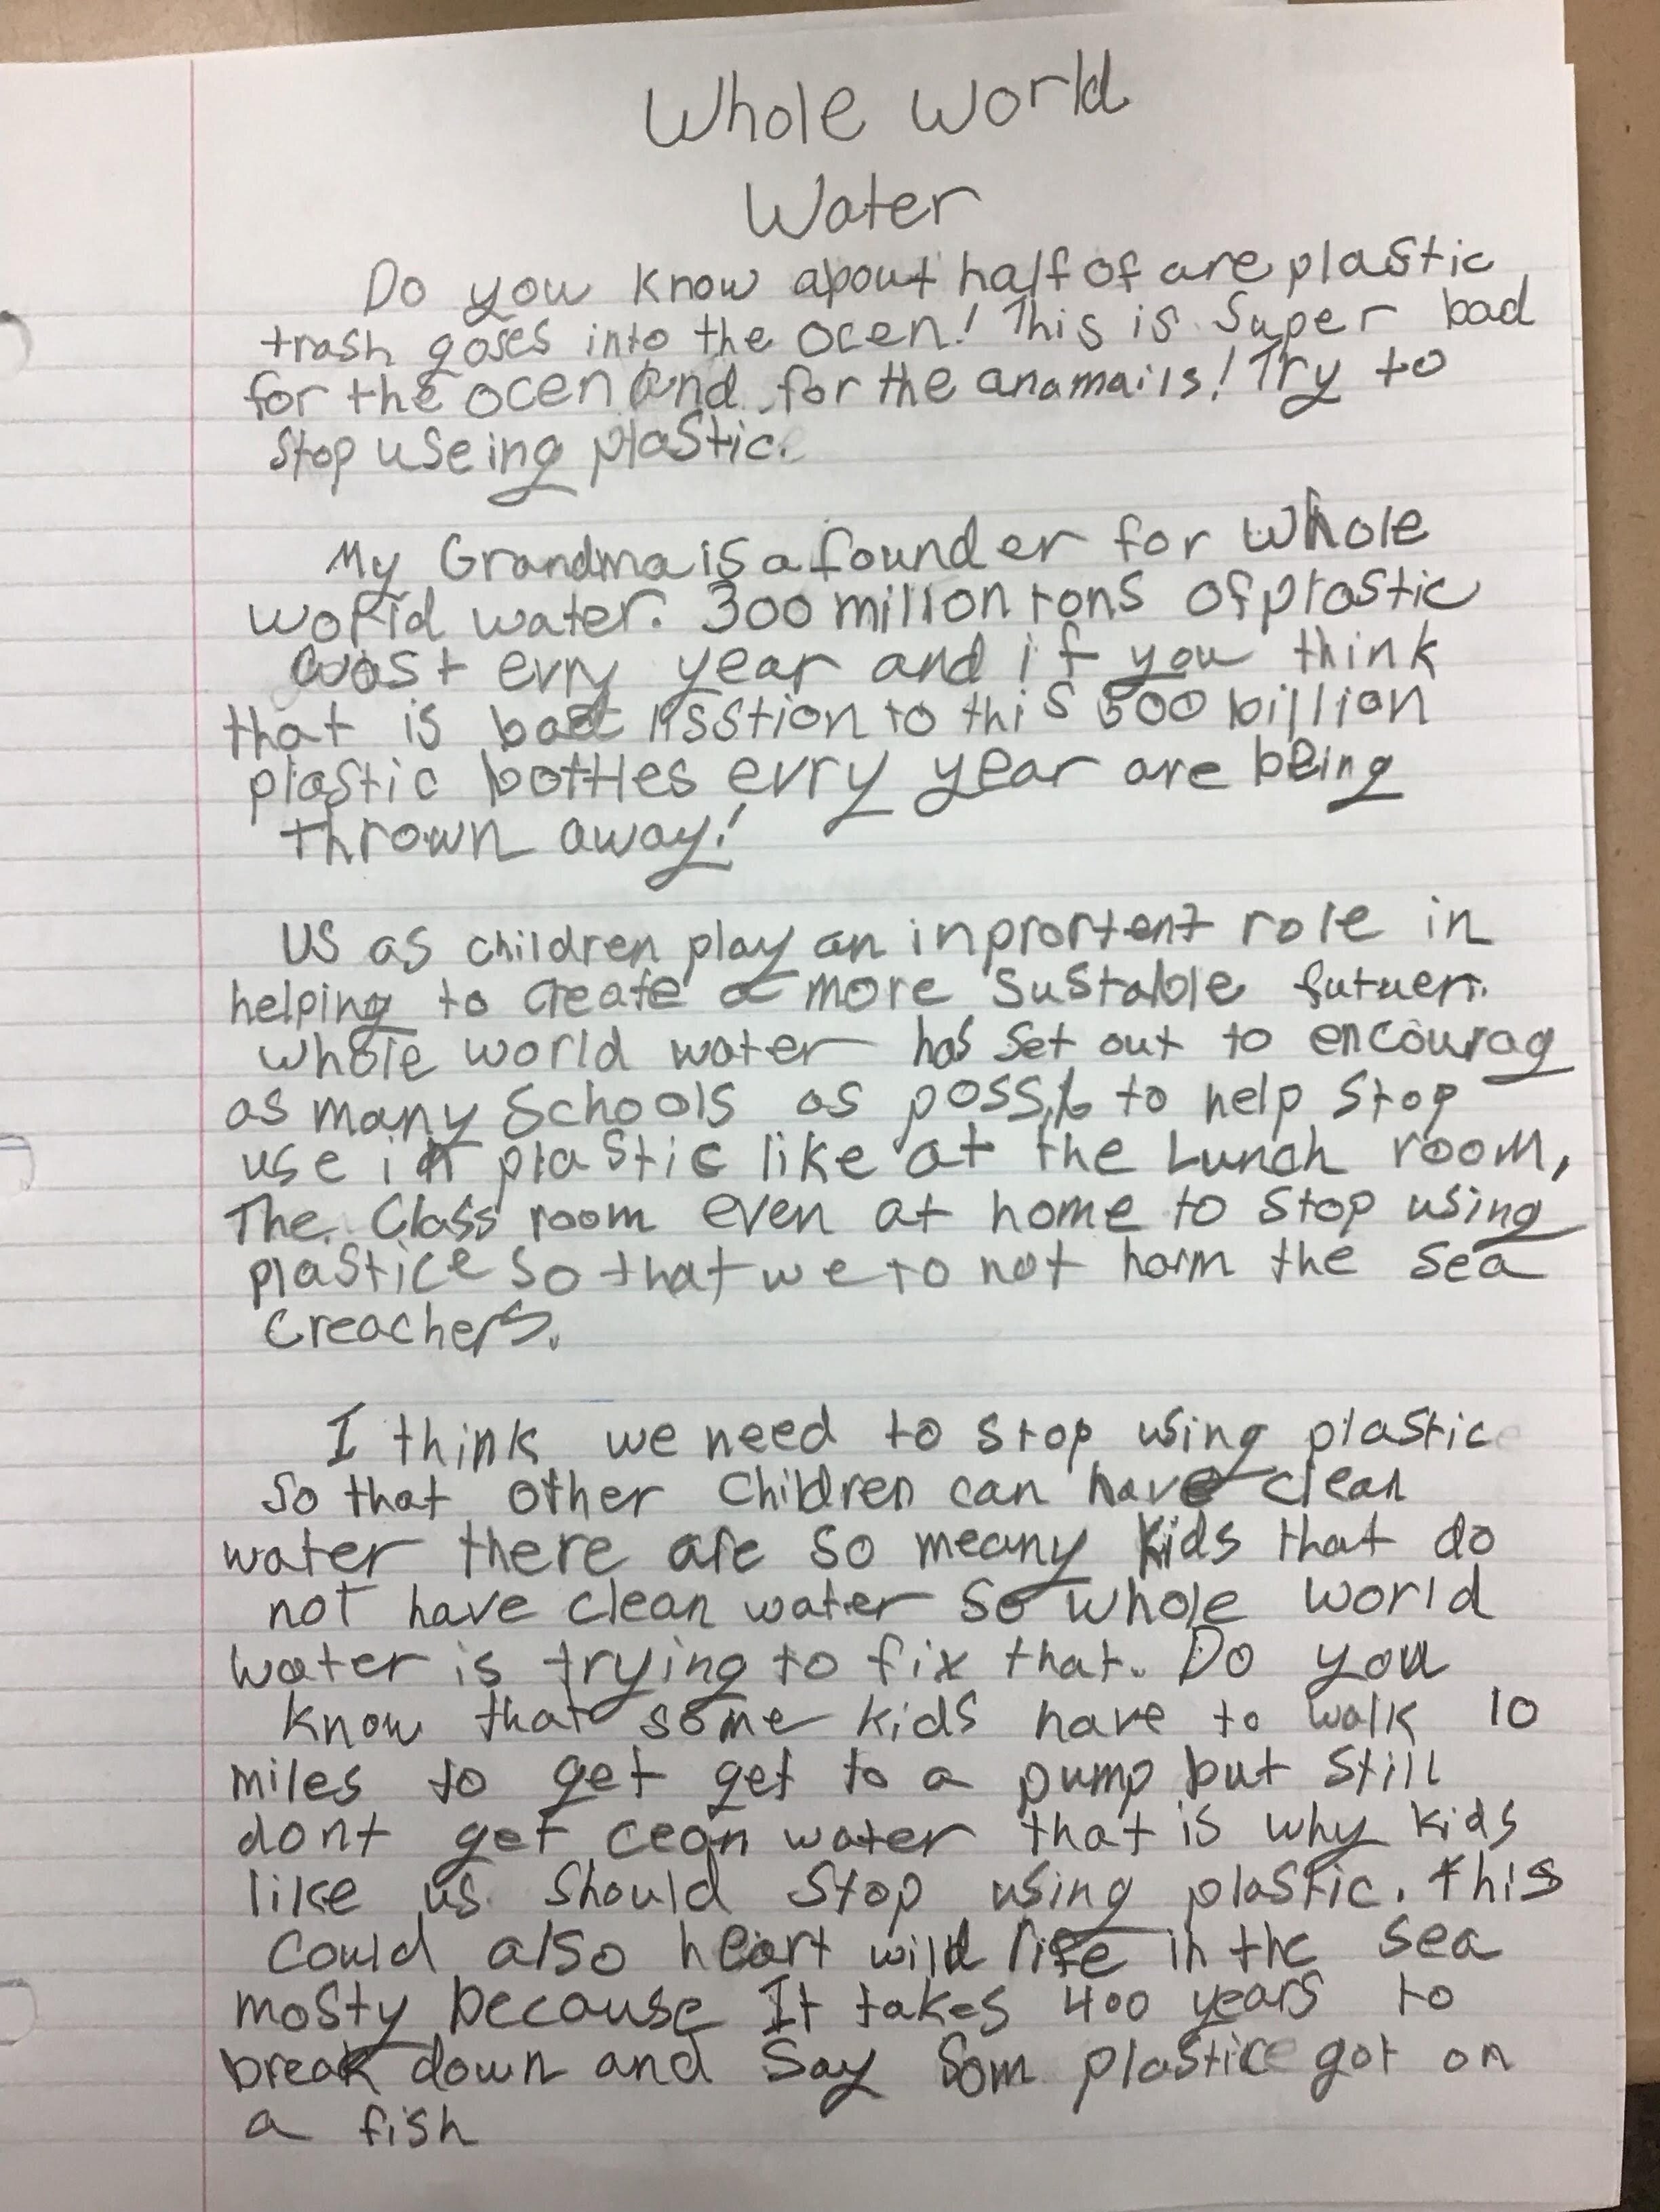 Whole world
Water
Do you know about half of are plastic
trash goses into the ocen! This is Super bad
for the ocen and for the anamails! Try to
Stop useing plastic.
My Grandma is a founder for Whole
world water. 300 million tons of plastic
wast evry year and if you think
that is bad lisstion to this 500 billion
plastic bottles evry year are being
thrown away!
US as children play an inprortent role in
helping to create a more sustable futuer.
whole world water has set out to encourag
as many Schools as to help stop
use in plastic like at the Lunch room,
The Class room even at home to stop using
plastice so that we to not harm the sea
Creachers.
I think we need to stop using plastic
So that other children can have clean
water there are so meany kids that do
not have clean water so whole world
water is trying to fix that. Do you
know that some kids have to walk 10
miles to get get to a pump but still
dont get cean water that is why kids
like us should stop using plastic. this
could also heart wild life in the sea
mosty because It takes 400 years to
break down and say som plastice got on
a fish